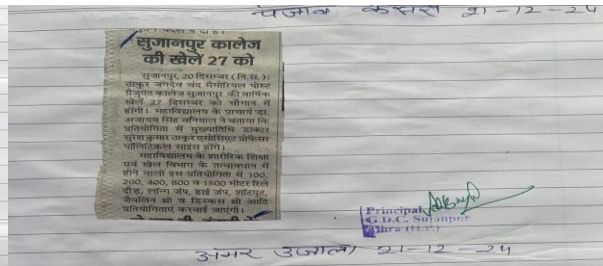 पंजाब केसरी 21-12-24
सुजानपुर कालेज
की खेलें 27 को
सुजानपुर, 20 दिसम्बर (नि.स.):
ठाकुर जगदेव चंद मैमोरियल पोस्ट
ग्रैजुएट कालेज सुजानपुर की वार्षिक
खेलें 27 दिसम्बर को चौगान में
होंगी। महाविद्यालय के प्राचार्य डा.
अजायब सिंह बनियाल ने बताया कि
प्रतियोगिता में मुख्यातिथि डाक्टर
सुरेश कुमार ठाकुर एसोसिएट प्रोफैसर
पॉलिटिकल साइंस होंगे।
महाविद्यालय के शारीरिक शिक्षा
एवं खेल विभाग के तत्वावधान में
होने वाली इस प्रतियोगिता में 100,
200, 400, 800 व 1500 मीटर रिले
दौड़, लॉन्ग जंप, हाई जंप, शॉटपुट,
जैवलिन थ्रो व डिस्कस थ्रो आदि
प्रतियोगिताएं करवाई जाएंगी।
Principal
G.D.C. Sujanpur
अमर उजाला 21-12-24